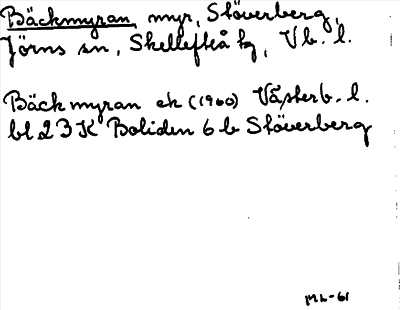 Bäckmyran, myr, Stöverberg,
Jörns sn, Skellefteå kg, Vb. l.
Bäckmyran ek (1960) Västerb. l.
bl 23 K Boliden 6 b Stöverberg
ML-61